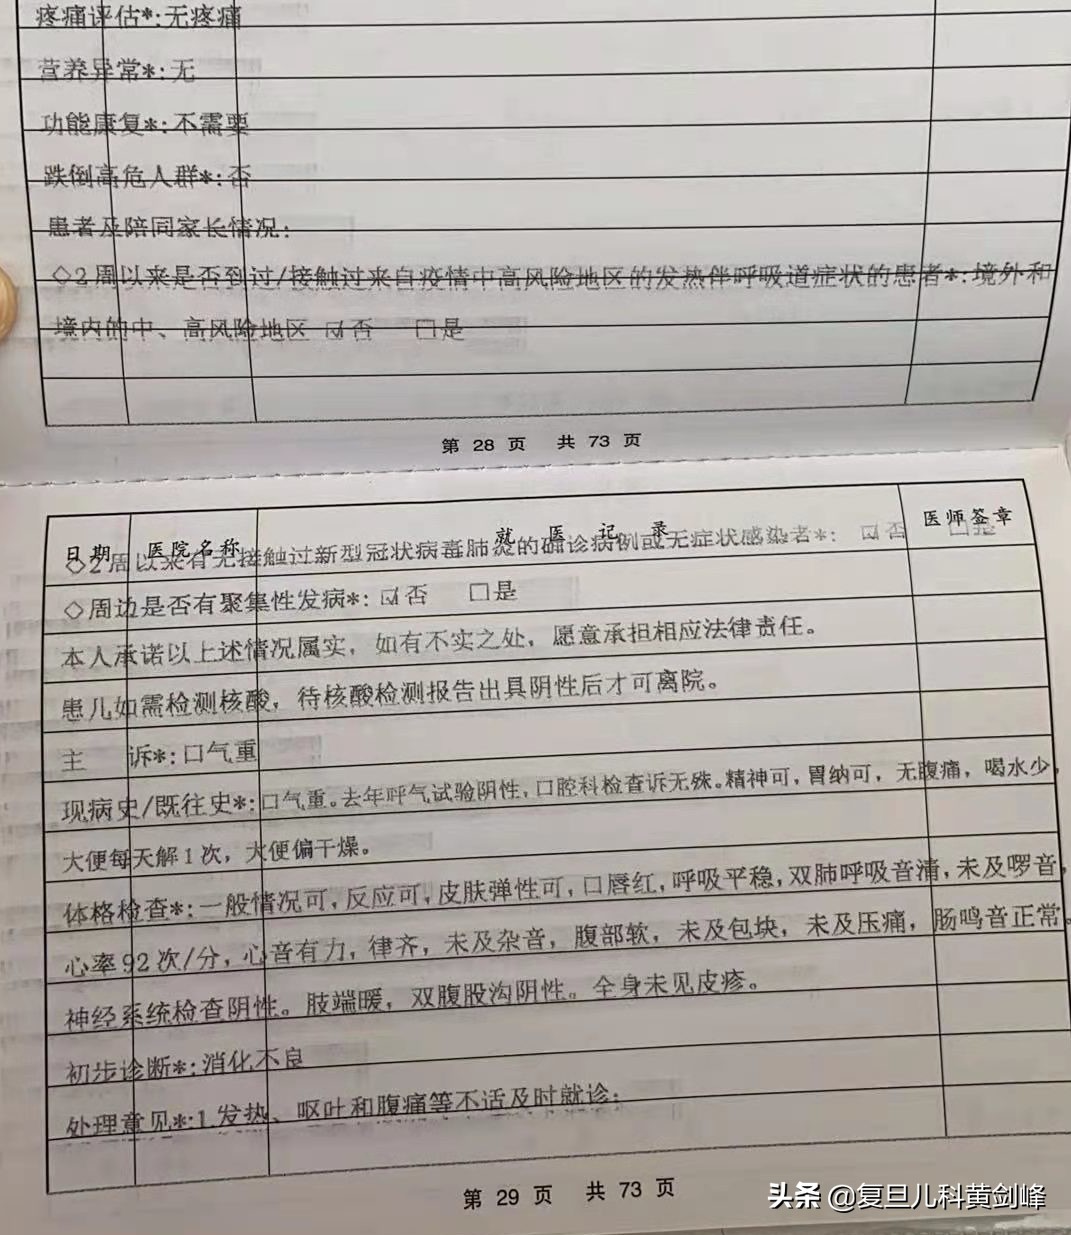 疼痛评估*:无疼痛
营养异常*:无
功能康复*:不需要
跌倒高危人群*:否
患者及陪同家长情况:
◇2周以来是否到过/接触过来自疫情中高风险地区的发热伴呼吸道症状的患者*:境外和
境内的中、高风险地区 ☑否 □是
第 28 页 共 73 页
日期 医院名称 就医记录 医师签章
◇2周以来有无接触过新型冠状病毒肺炎的确诊病例或无症状感染者*: ☑否 □是
◇周边是否有聚集性发病*: ☑否 □是
本人承诺以上述情况属实，如有不实之处，愿意承担相应法律责任。
患儿如需检测核酸，待核酸检测报告出具阴性后才可离院。
主 诉*:口气重
现病史/既往史*:口气重。去年呼气试验阴性，口腔科检查诉无殊。精神可，胃纳可，无腹痛，喝水少，
大便每天解1次，大便偏干燥。
体格检查*:一般情况可，反应可，皮肤弹性可，口唇红，呼吸平稳，双肺呼吸音清，未及啰音，
心率92次/分，心音有力，律齐，未及杂音，腹部软，未及包块，未及压痛，肠鸣音正常。
神经系统检查阴性。肢端暖，双腹股沟阴性。全身未见皮疹。
初步诊断*:消化不良
处理意见*:1.发热、呕吐和腹痛等不适及时就诊;
第 29 页 共 73 页
头条 @复旦儿科黄剑峰